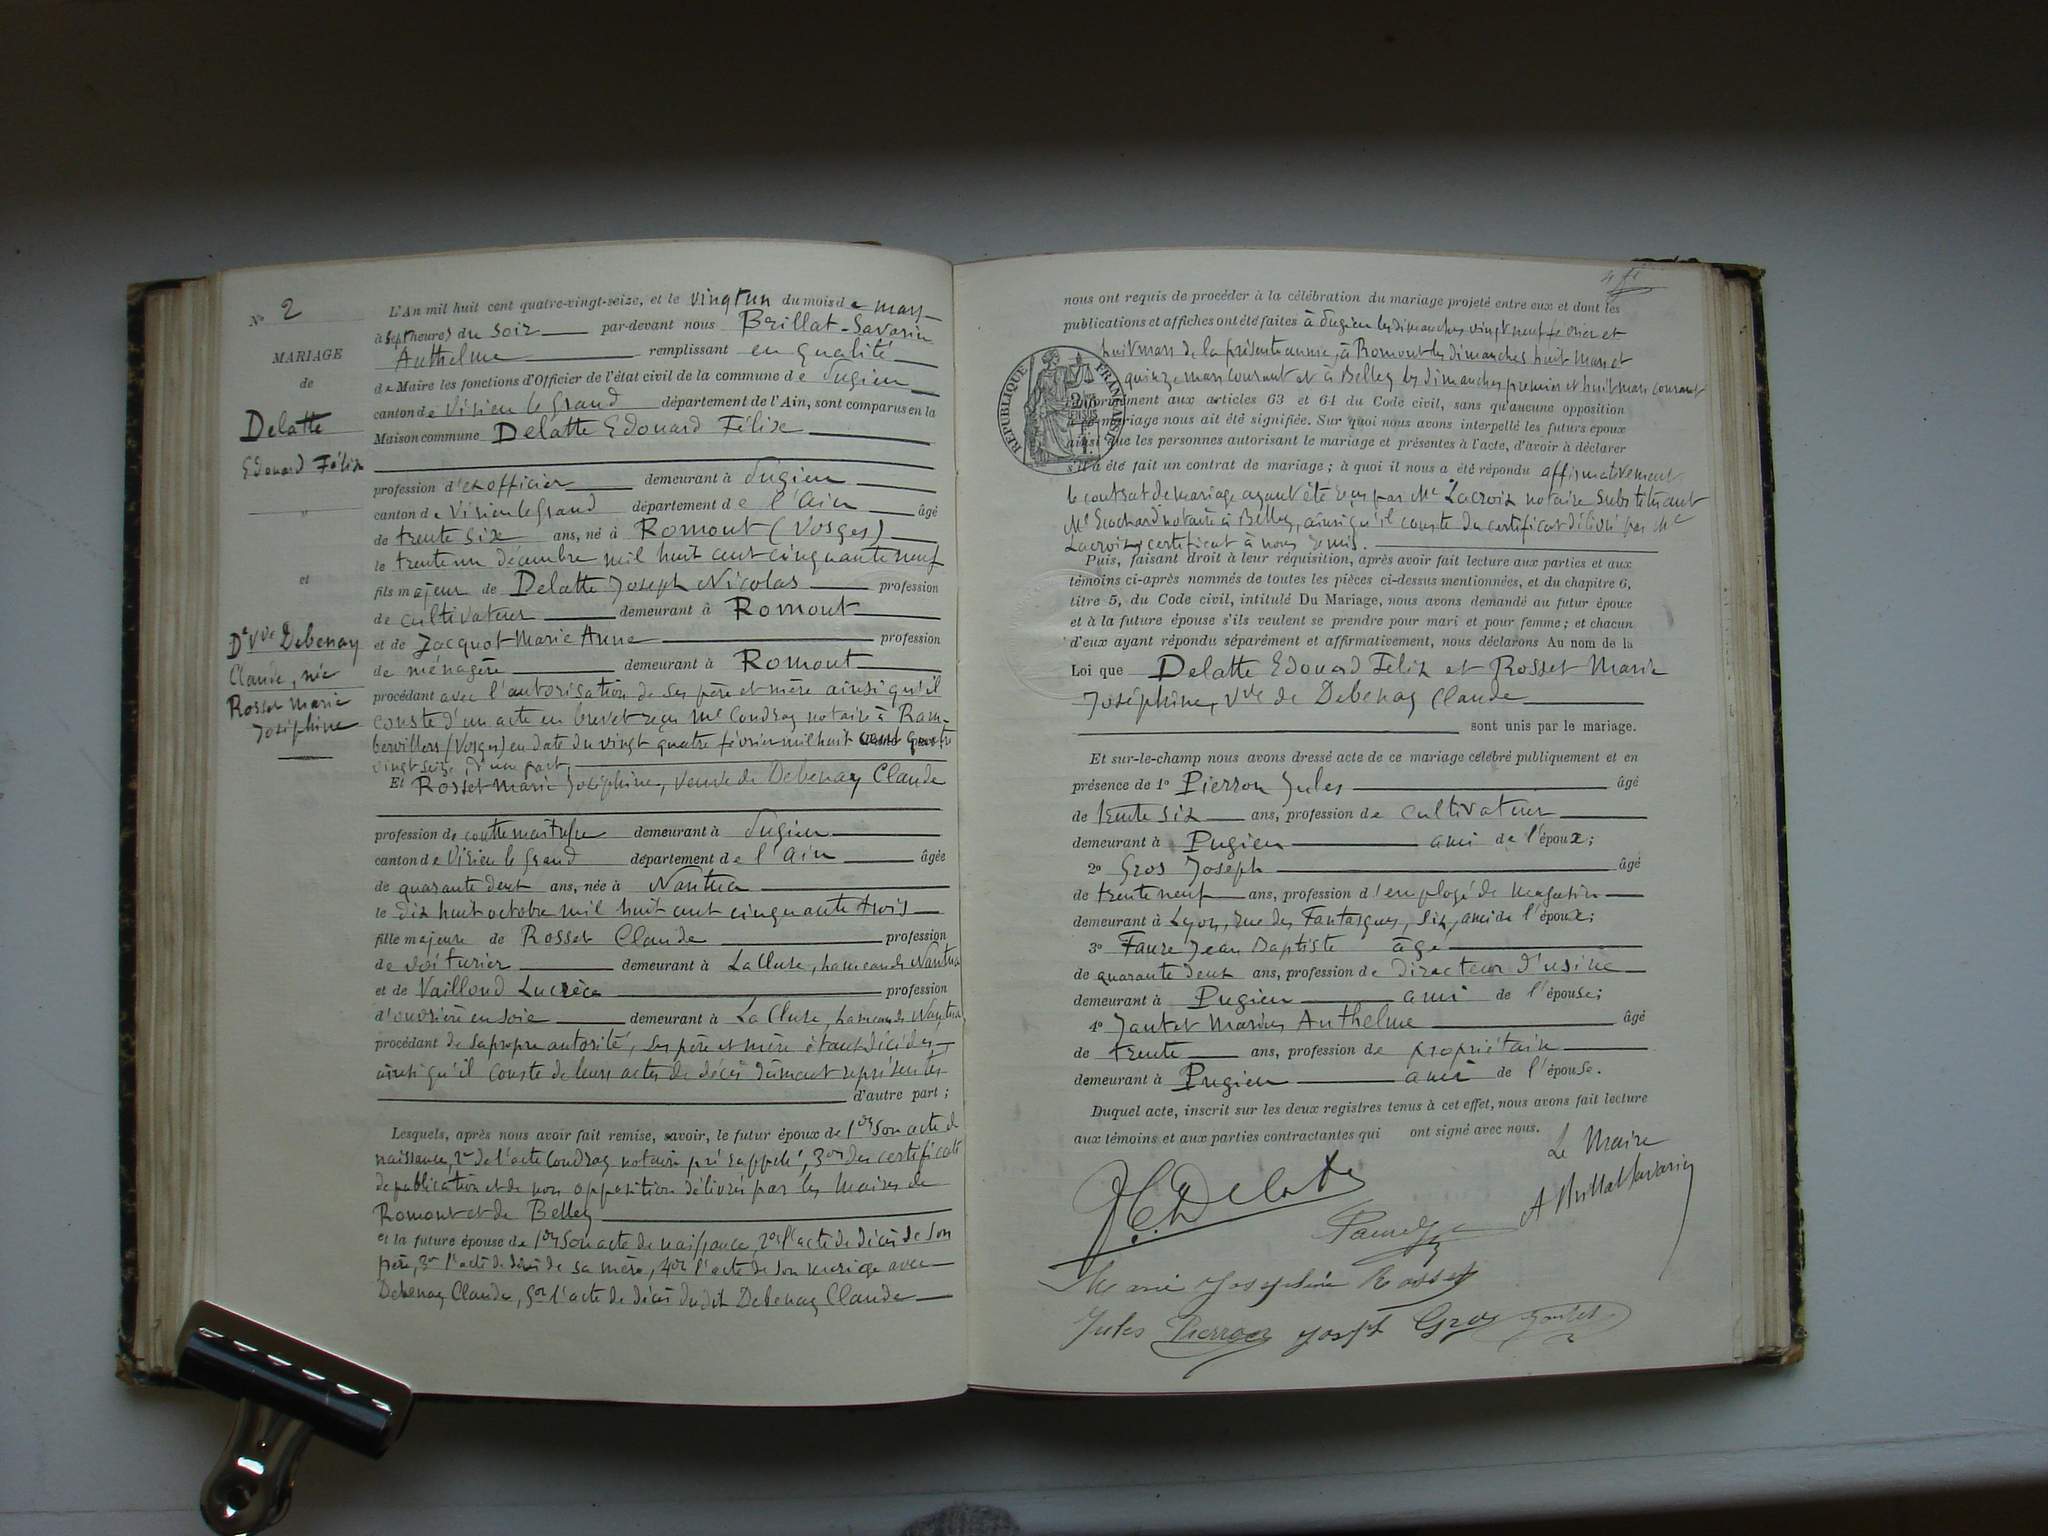 No 2
MARIAGE
de
Delatte
Edouard Félix
"
et
De Vve Debenay
Claude, née
Rosset Marie
Joséphine
L'An mil huit cent quatre-vingt-seize, et le vingt un du mois de mars
à sept heures du soir par-devant nous Brillat-Savarin
Anthelme remplissant en qualité
de Maire les fonctions d'Officier de l'état civil de la commune de Pugieu
canton de Virieu le Grand département de l'Ain, sont comparus en la
Maison commune Delatte Edouard Félix
profession d'ex officier demeurant à Pugieu
canton de Virieu le Grand département de l'Ain âgé
de trente six ans, né à Romont (Vosges)
le trente un décembre mil huit cent cinquante neuf
fils majeur de Delatte Joseph Nicolas profession
de cultivateur demeurant à Romont
et de Jacquot Marie Anne profession
de ménagère demeurant à Romont
procédant avec l'autorisation de ses père et mère ainsi qu'il
conste d'un acte en brevet reçu Me Coudray notaire à Ram-
bervillers (Vosges) en date du vingt quatre février mil huit cent quatre
vingt seize, d'une part,
Et Rosset Marie Joséphine, veuve de Debenay Claude
profession de contremaîtresse demeurant à Pugieu
canton de Virieu le Grand département de l'Ain âgée
de quarante deux ans, née à Nantua
le dix huit octobre mil huit cent cinquante trois
fille majeure de Rosset Claude profession
de voiturier demeurant à La Cluse, hameau de Nantua
et de Vailloud Lucrèce profession
d'ouvrière en soie demeurant à La Cluse, hameau de Nantua
procédant de sa propre autorité, ses père et mère étant décédés
ainsi qu'il conste de leurs actes de décès dûment représentés
d'autre part ;
Lesquels, après nous avoir fait remise, savoir, le futur époux de 1ent son acte de
naissance, 2ent de l'acte Coudray notaire pré rappelé, 3ent des certificats
de publication et de non opposition délivrés par les Maires de
Romont et de Belley
et la future épouse de 1ent son acte de naissance, 2ent l'acte de décès de son
père, 3ent l'acte de décès de sa mère, 4ent l'acte de son mariage avec
Debenay Claude, 5ent l'acte de décès dudit Debenay Claude
nous ont requis de procéder à la célébration du mariage projeté entre eux et dont les
publications et affiches ont été faites à Pugieu les dimanches vingt neuf février et
huit mars de la présente année, à Romont les dimanches huit mars et
quinze mars courant et à Belley les dimanches premier et huit mars courant
RÉPUBLIQUE FRANÇAISE
conformément aux articles 63 et 64 du Code civil, sans qu'aucune opposition
à ce mariage nous ait été signifiée. Sur quoi nous avons interpellé les futurs époux
ainsi que les personnes autorisant le mariage et présentes à l'acte, d'avoir à déclarer
s'il a été fait un contrat de mariage ; à quoi il nous a été répondu affirmativement
le contrat de mariage ayant été reçu par Me Lacroix notaire substituant
Me notaire à Belley, ainsi qu'il conste du certificat délivré par Me
Lacroix, certificat à nous remis.
Puis, faisant droit à leur réquisition, après avoir fait lecture aux parties et aux
témoins ci-après nommés de toutes les pièces ci-dessus mentionnées, et du chapitre 6,
titre 5, du Code civil, intitulé Du Mariage, nous avons demandé au futur époux
et à la future épouse s'ils veulent se prendre pour mari et pour femme ; et chacun
d'eux ayant répondu séparément et affirmativement, nous déclarons Au nom de la
Loi que Delatte Edouard Félix et Rosset Marie
Joséphine, Vve de Debenay Claude
sont unis par le mariage.
Et sur-le-champ nous avons dressé acte de ce mariage célébré publiquement et en
présence de 1o Pierron Jules âgé
de trente six ans, profession de cultivateur
demeurant à Pugieu ami de l'époux ;
2o Gros Joseph âgé
de trente neuf ans, profession d'employé de magasin
demeurant à Lyon, rue des Fantasques, six, ami de l'époux ;
3o Faure Jean Baptiste âgé
de quarante deux ans, profession de directeur d'usine
demeurant à Pugieu ami de l'épouse ;
4o Jantet Marius Anthelme âgé
de trente ans, profession de propriétaire
demeurant à Pugieu ami de l'épouse.
Duquel acte, inscrit sur les deux registres tenus à cet effet, nous avons fait lecture
aux témoins et aux parties contractantes qui ont signé avec nous.
Le Maire
Delatte
A Brillat Savarin
Marie Josephine Rosset
Jules Pierron Joseph Gros Jantet